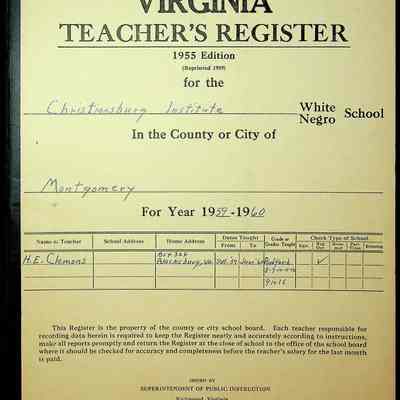 VIRGINIA
TEACHER'S REGISTER
1955 Edition
(Reprinted 1959)
for the
Christiansburg Institute White Negro School
In the County or City of
Montgomery
For Year 1959-1960
Name of Teacher School Address Home Address Dates Taught From To Grade or Grades Taught Check Type of School
H.E. Clemons Box 304 Blacksburg, Va. ✓
This Register is the property of the county or city school board. Each teacher responsible for
recording data herein is required to keep the Register neatly and accurately according to instructions,
make all reports promptly and return the Register at the close of school to the office of the school board
where it should be checked for accuracy and completeness before the teacher's salary for the last month
is paid.
ISSUED BY
SUPERINTENDENT OF PUBLIC INSTRUCTION
Richmond, Virginia